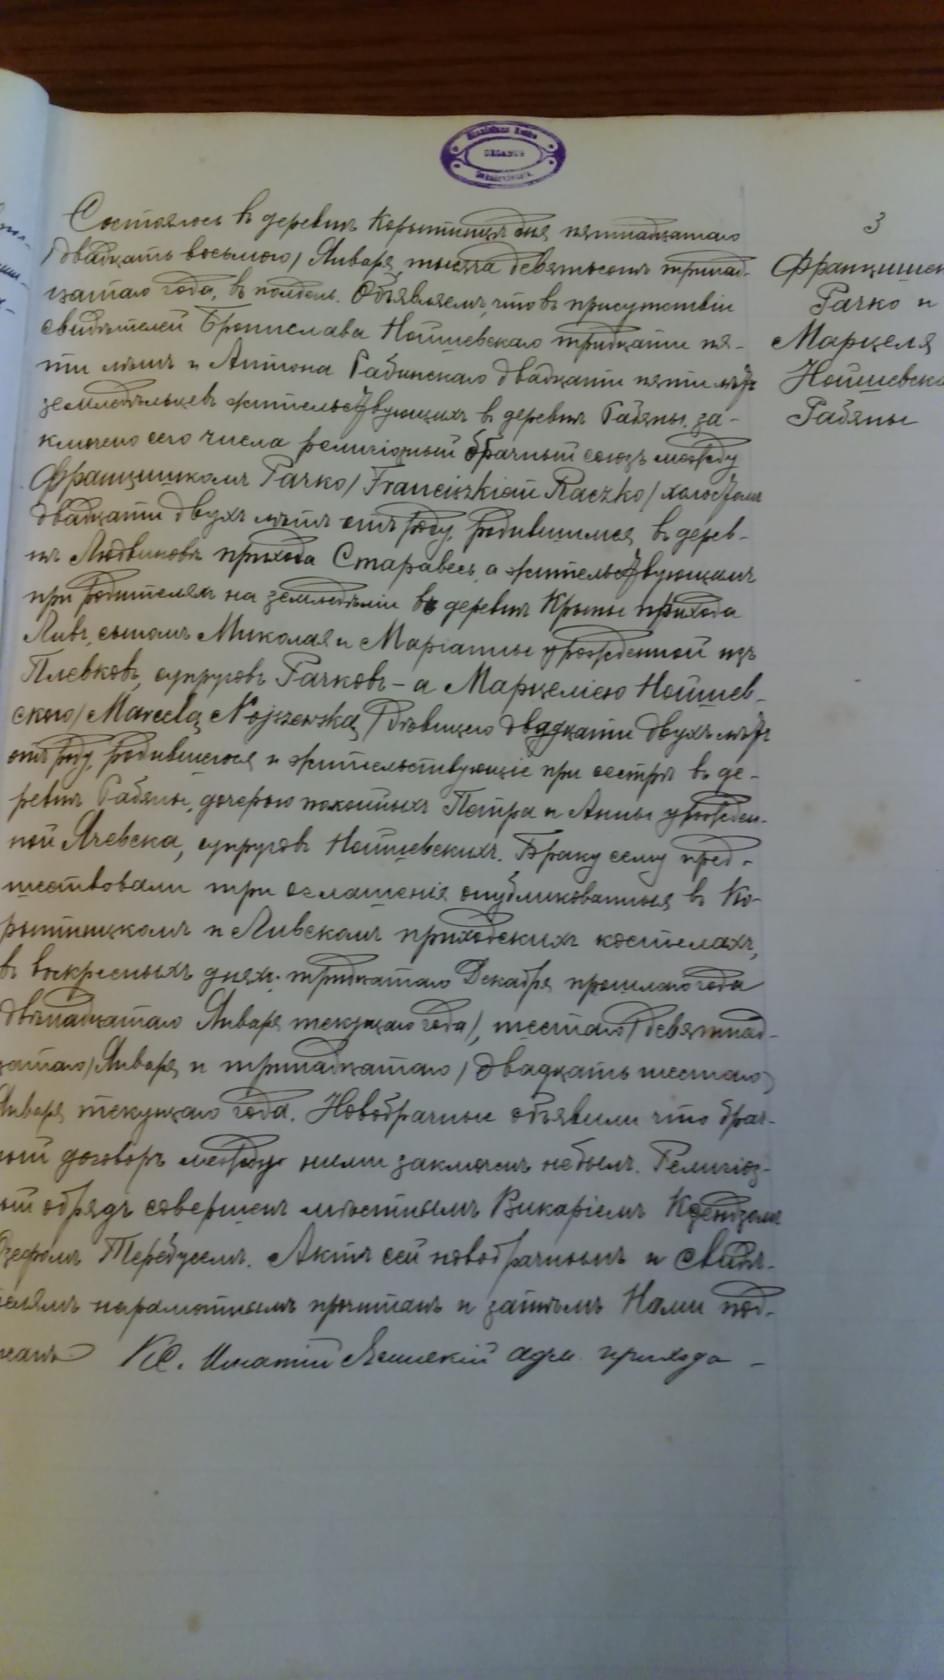 3
Францишек
Рачко и
Марцеля
Нойшевска
Рабяны
Состоялось въ деревнѣ Корытница дня пятнадцатаго
/двадцать восьмого/ Января, тысяча девятьсотъ тринад-
цатаго года, въ полдень. Объявляемъ, что въ присутствіи
свидѣтелей Бронислава Нойшевскаго тридцати пя-
ти лѣтъ и Антона Рабинскаго двадцати пяти лѣтъ
земледѣльцевъ жительствующихъ в деревнѣ Рабяны, за-
ключено сего числа религіозный брачный союзъ между
Францишкомъ Рачко /Franciszkiem Raczko/ холостымъ
двадцати двухъ лѣтъ отъ роду, родившимся въ дерев-
нѣ Людвиновъ прихода Старавесь, а жительствующимъ
при родителяхъ на земледѣліи въ деревнѣ Крыпы прихода
Ливъ, сыномъ Миколая и Маріанны урожденной изъ
Плевковъ, супруговъ Рачковъ - а Марцеліею Нойшев-
скою /Marcelą Nojszewską/ дѣвицею двадцати двухъ лѣтъ
отъ роду, родившеюся и жительствующіе при сестрѣ въ де-
ревнѣ Рабяны, дочерью покойныхъ Петра и Анны урожден-
ной Ячевска, супруговъ Нойшевскихъ. Браку сему пред-
шествовали три оглашенія опубликованныя въ Ко-
рытницкомъ и Ливскомъ приходскихъ костелахъ,
въ воскресныхъ дняхъ: тридцатаго Декабря прошлаго года
двѣнадцатаго Января текущаго года/, шестаго /девятнад-
цатаго/ Января и тринадцатаго /двадцать шестаго/
Января текущаго года. Новобрачные объявили что брач-
ный договоръ между ними заключенъ небылъ. Религіоз-
ный обрядъ совершенъ мѣстнымъ Викаріемъ Ксендзомъ
Іозефомъ. Актъ сей новобрачнымъ и свидѣ-
телямъ неграмотнымъ прочитанъ и затѣмъ Нами под-
писанъ Кс. Игнатій адм. прихода -